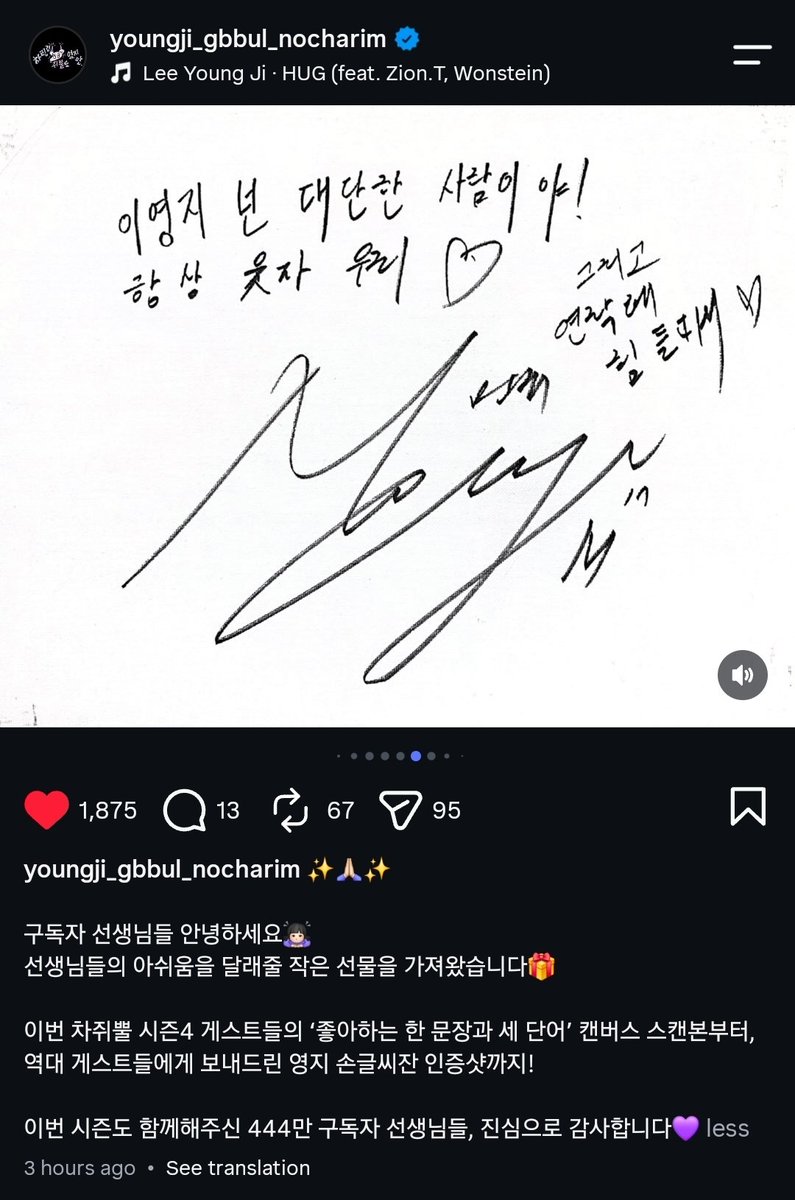 youngji_gbbul_nocharim
Lee Young Ji · HUG (feat. Zion.T, Wonstein)
이영지 넌 대단한 사람이야!
항상 웃자 우리 ♡
그리고
연락해
힘들때 ♡
1,875
13
67
95
youngji_gbbul_nocharim ✨🙏🏻✨
구독자 선생님들 안녕하세요🙇🏻‍♀️
선생님들의 아쉬움을 달래줄 작은 선물을 가져왔습니다🎁
이번 차쥐뿔 시즌4 게스트들의 ‘좋아하는 한 문장과 세 단어’ 캔버스 스캔본부터,
역대 게스트들에게 보내드린 영지 손글씨잔 인증샷까지!
이번 시즌도 함께해주신 444만 구독자 선생님들, 진심으로 감사합니다💜 less
3 hours ago • See translation